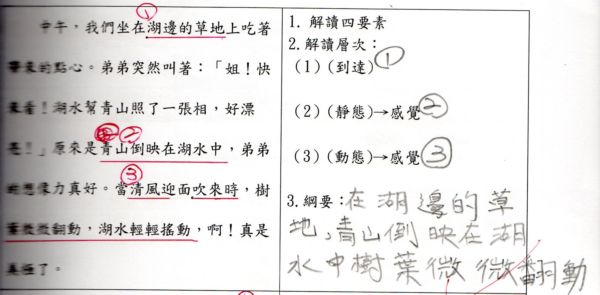 ①
中午，我們坐在湖邊的草地上吃著
帶來的點心。弟弟突然叫著：「姐！快
來看！湖水幫青山照了一張相，好漂
②
亮！」原來是青山倒映在湖水中，弟弟
③
的想像力真好。當清風迎面吹來時，樹
葉微微翻動，湖水輕輕搖動，啊！真是
美極了。
1. 解讀四要素
2. 解讀層次：
(1)(到達)①
(2)(靜態)→感覺②
(3)(動態)→感覺③
3. 綱要：在湖邊的草
地，青山倒映在湖
水中樹葉微微翻動